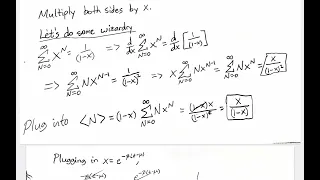 Multiply both sides by x.
Let's do some wizardry
∞∑N=0 x^N = 1/(1-x) => d/dx ∞∑N=0 x^N = d/dx [1/(1-x)]
=> ∞∑N=0 Nx^(N-1) = 1/(1-x)^2 => x ∞∑N=0 Nx^(N-1) = ∞∑N=0 Nx^N = x/(1-x)^2
Plug into <N> = (1-x) ∞∑N=0 Nx^N = (1-x)x/(1-x)^2 = x/(1-x)
Plugging in x = e^(-β(ε-μ))